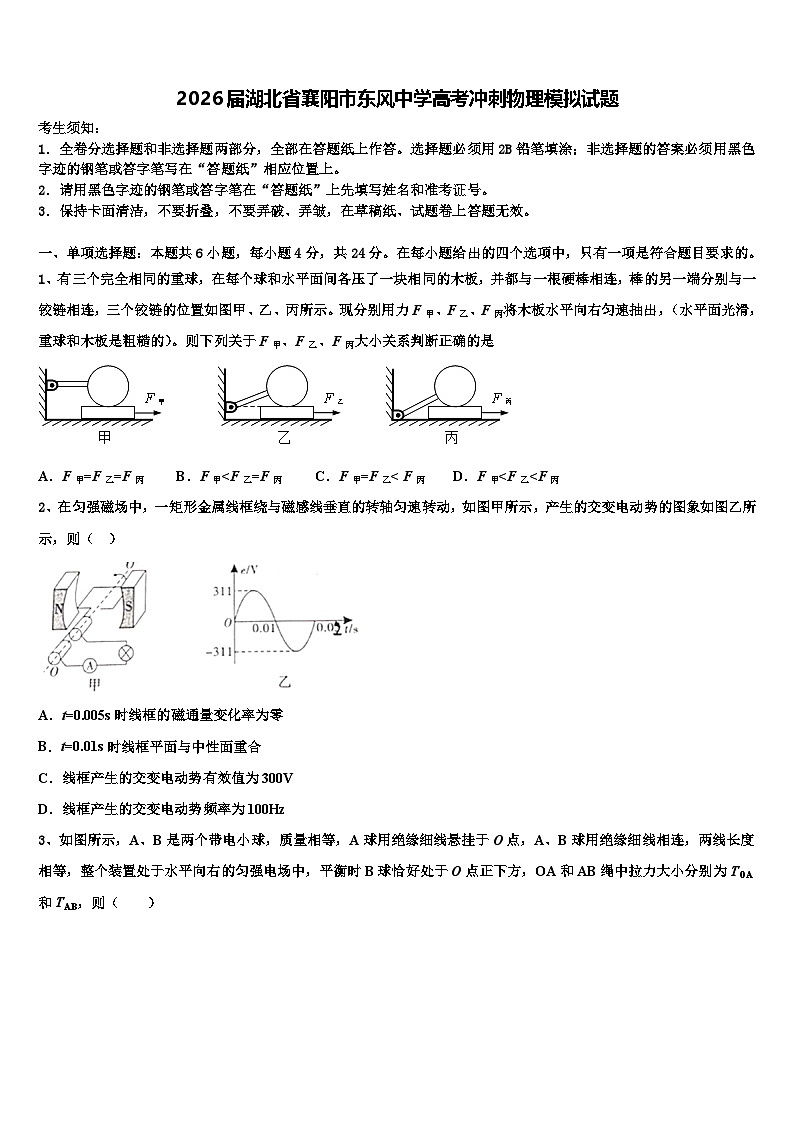 2026届湖北省襄阳市东风中学高考冲刺物理模拟试题
考生须知：
1．全卷分选择题和非选择题两部分，全部在答题纸上作答。选择题必须用2B铅笔填涂；非选择题的答案必须用黑色
字迹的钢笔或答字笔写在“答题纸”相应位置上。
2．请用黑色字迹的钢笔或答字笔在“答题纸”上先填写姓名和准考证号。
3．保持卡面清洁，不要折叠，不要弄破、弄皱，在草稿纸、试题卷上答题无效。
一、单项选择题：本题共6小题，每小题4分，共24分。在每小题给出的四个选项中，只有一项是符合题目要求的。
1、有三个完全相同的重球，在每个球和水平面间各压了一块相同的木板，并都与一根硬棒相连，棒的另一端分别与一
铰链相连，三个铰链的位置如图甲、乙、丙所示。现分别用力F甲、F乙、F丙将木板水平向右匀速抽出，（水平面光滑，
重球和木板是粗糙的）。则下列关于F甲、F乙、F丙大小关系判断正确的是
F甲 F乙 F丙
甲 乙 丙
A．F甲=F乙=F丙 B．F甲<F乙=F丙 C．F甲=F乙< F丙 D．F甲<F乙<F丙
2、在匀强磁场中，一矩形金属线框绕与磁感线垂直的转轴匀速转动，如图甲所示，产生的交变电动势的图象如图乙所
示，则（ ）
O′ N S A O 甲
e/V 311 O 0.01 0.02 t/s -311 乙
A．t=0.005s时线框的磁通量变化率为零
B．t=0.01s时线框平面与中性面重合
C．线框产生的交变电动势有效值为300V
D．线框产生的交变电动势频率为100Hz
3、如图所示，A、B是两个带电小球，质量相等，A球用绝缘细线悬挂于O点，A、B球用绝缘细线相连，两线长度
相等，整个装置处于水平向右的匀强电场中，平衡时B球恰好处于O点正下方，OA和AB绳中拉力大小分别为TOA
和TAB，则（ ）